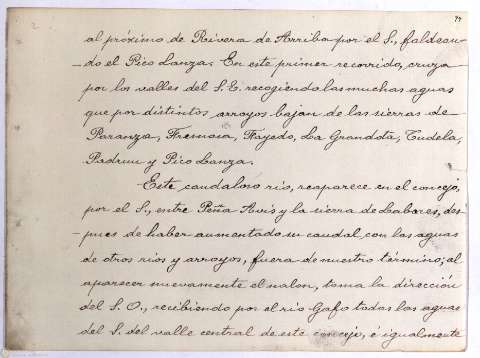 al próximo de Rivera de Arriba por el S., faldean-
-do el Pico Lanza. En este primer recorrido, cruza
por los valles del S.E. recogiendo las muchas aguas
que por distintos arroyos bajan de las sierras de
Paranza, Fresnosa, Fayedo, La Grandota, Tudela,
Padrun y Pico Lanza.
Este caudaloso rio, reaparece en el concejo,
por el S., entre Peña Avis y la sierra de Labares, des-
-pues de haber aumentado su caudal, con las aguas
de otros rios y arroyos, fuera de nuestro término; al
aparecer nuevamente el nalon, toma la dirección
del S.O., recibiendo por el rio Gafo todas las aguas
del S. del valle central de este concejo, é igualmente